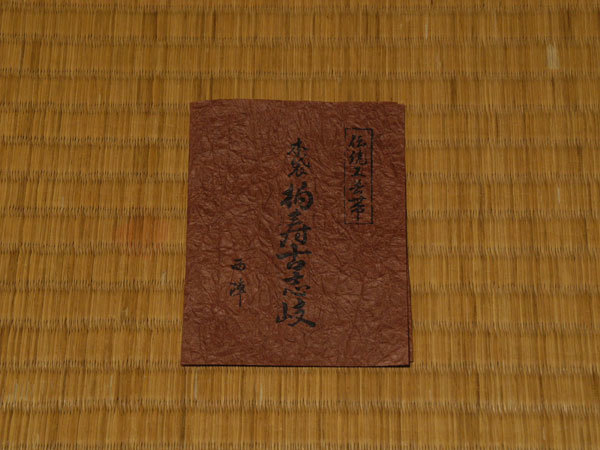 伝統工芸帯
本袋 福寿古志岐
西陣